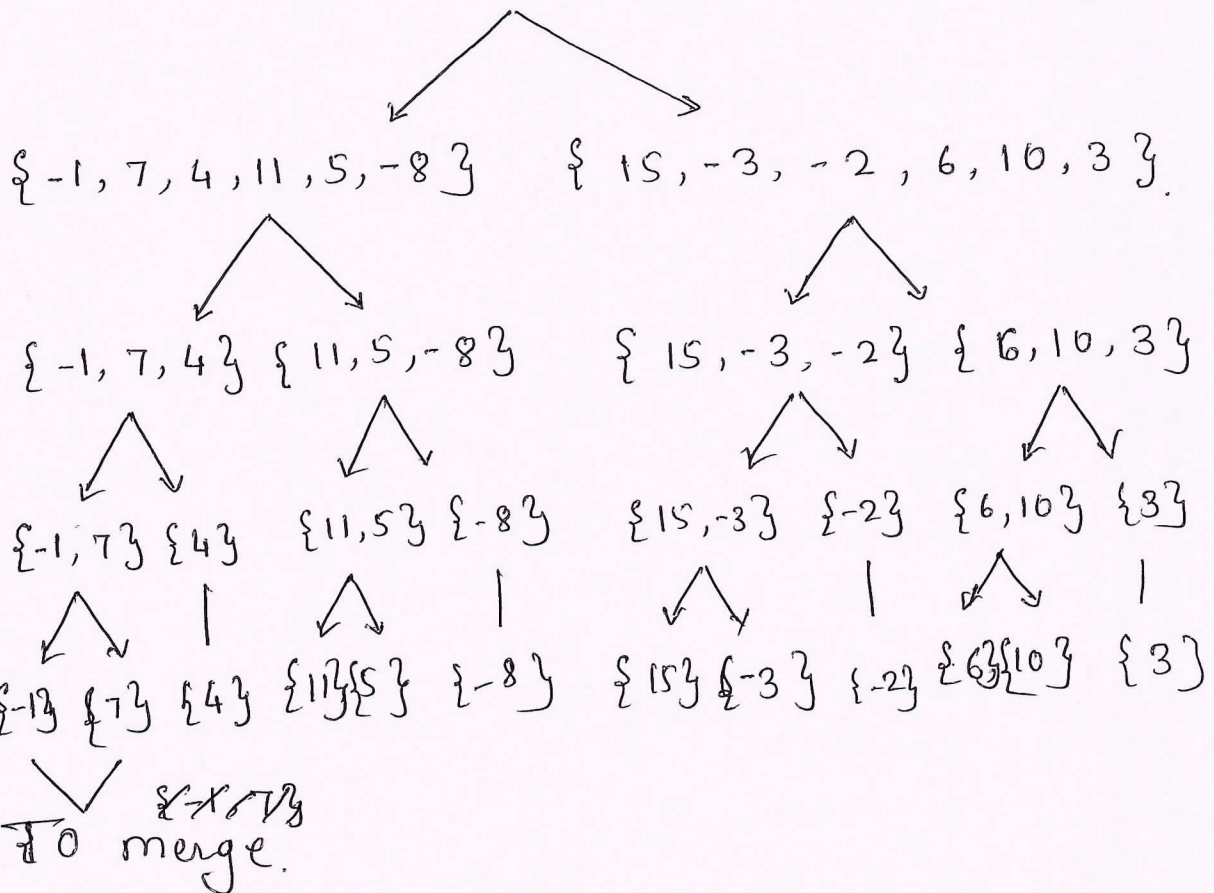 {-1, 7, 4, 11, 5, -8} { 15, -3, -2, 6, 10, 3}.
{-1, 7, 4} {11, 5, -8} { 15, -3, -2} {6, 10, 3}
{-1, 7} {4} {11, 5} {-8} {15, -3} {-2} {6, 10} {3}
{-1} {7} {4} {11} {5} {-8} {15} {-3} {-2} {6} {10} {3}
To merge.